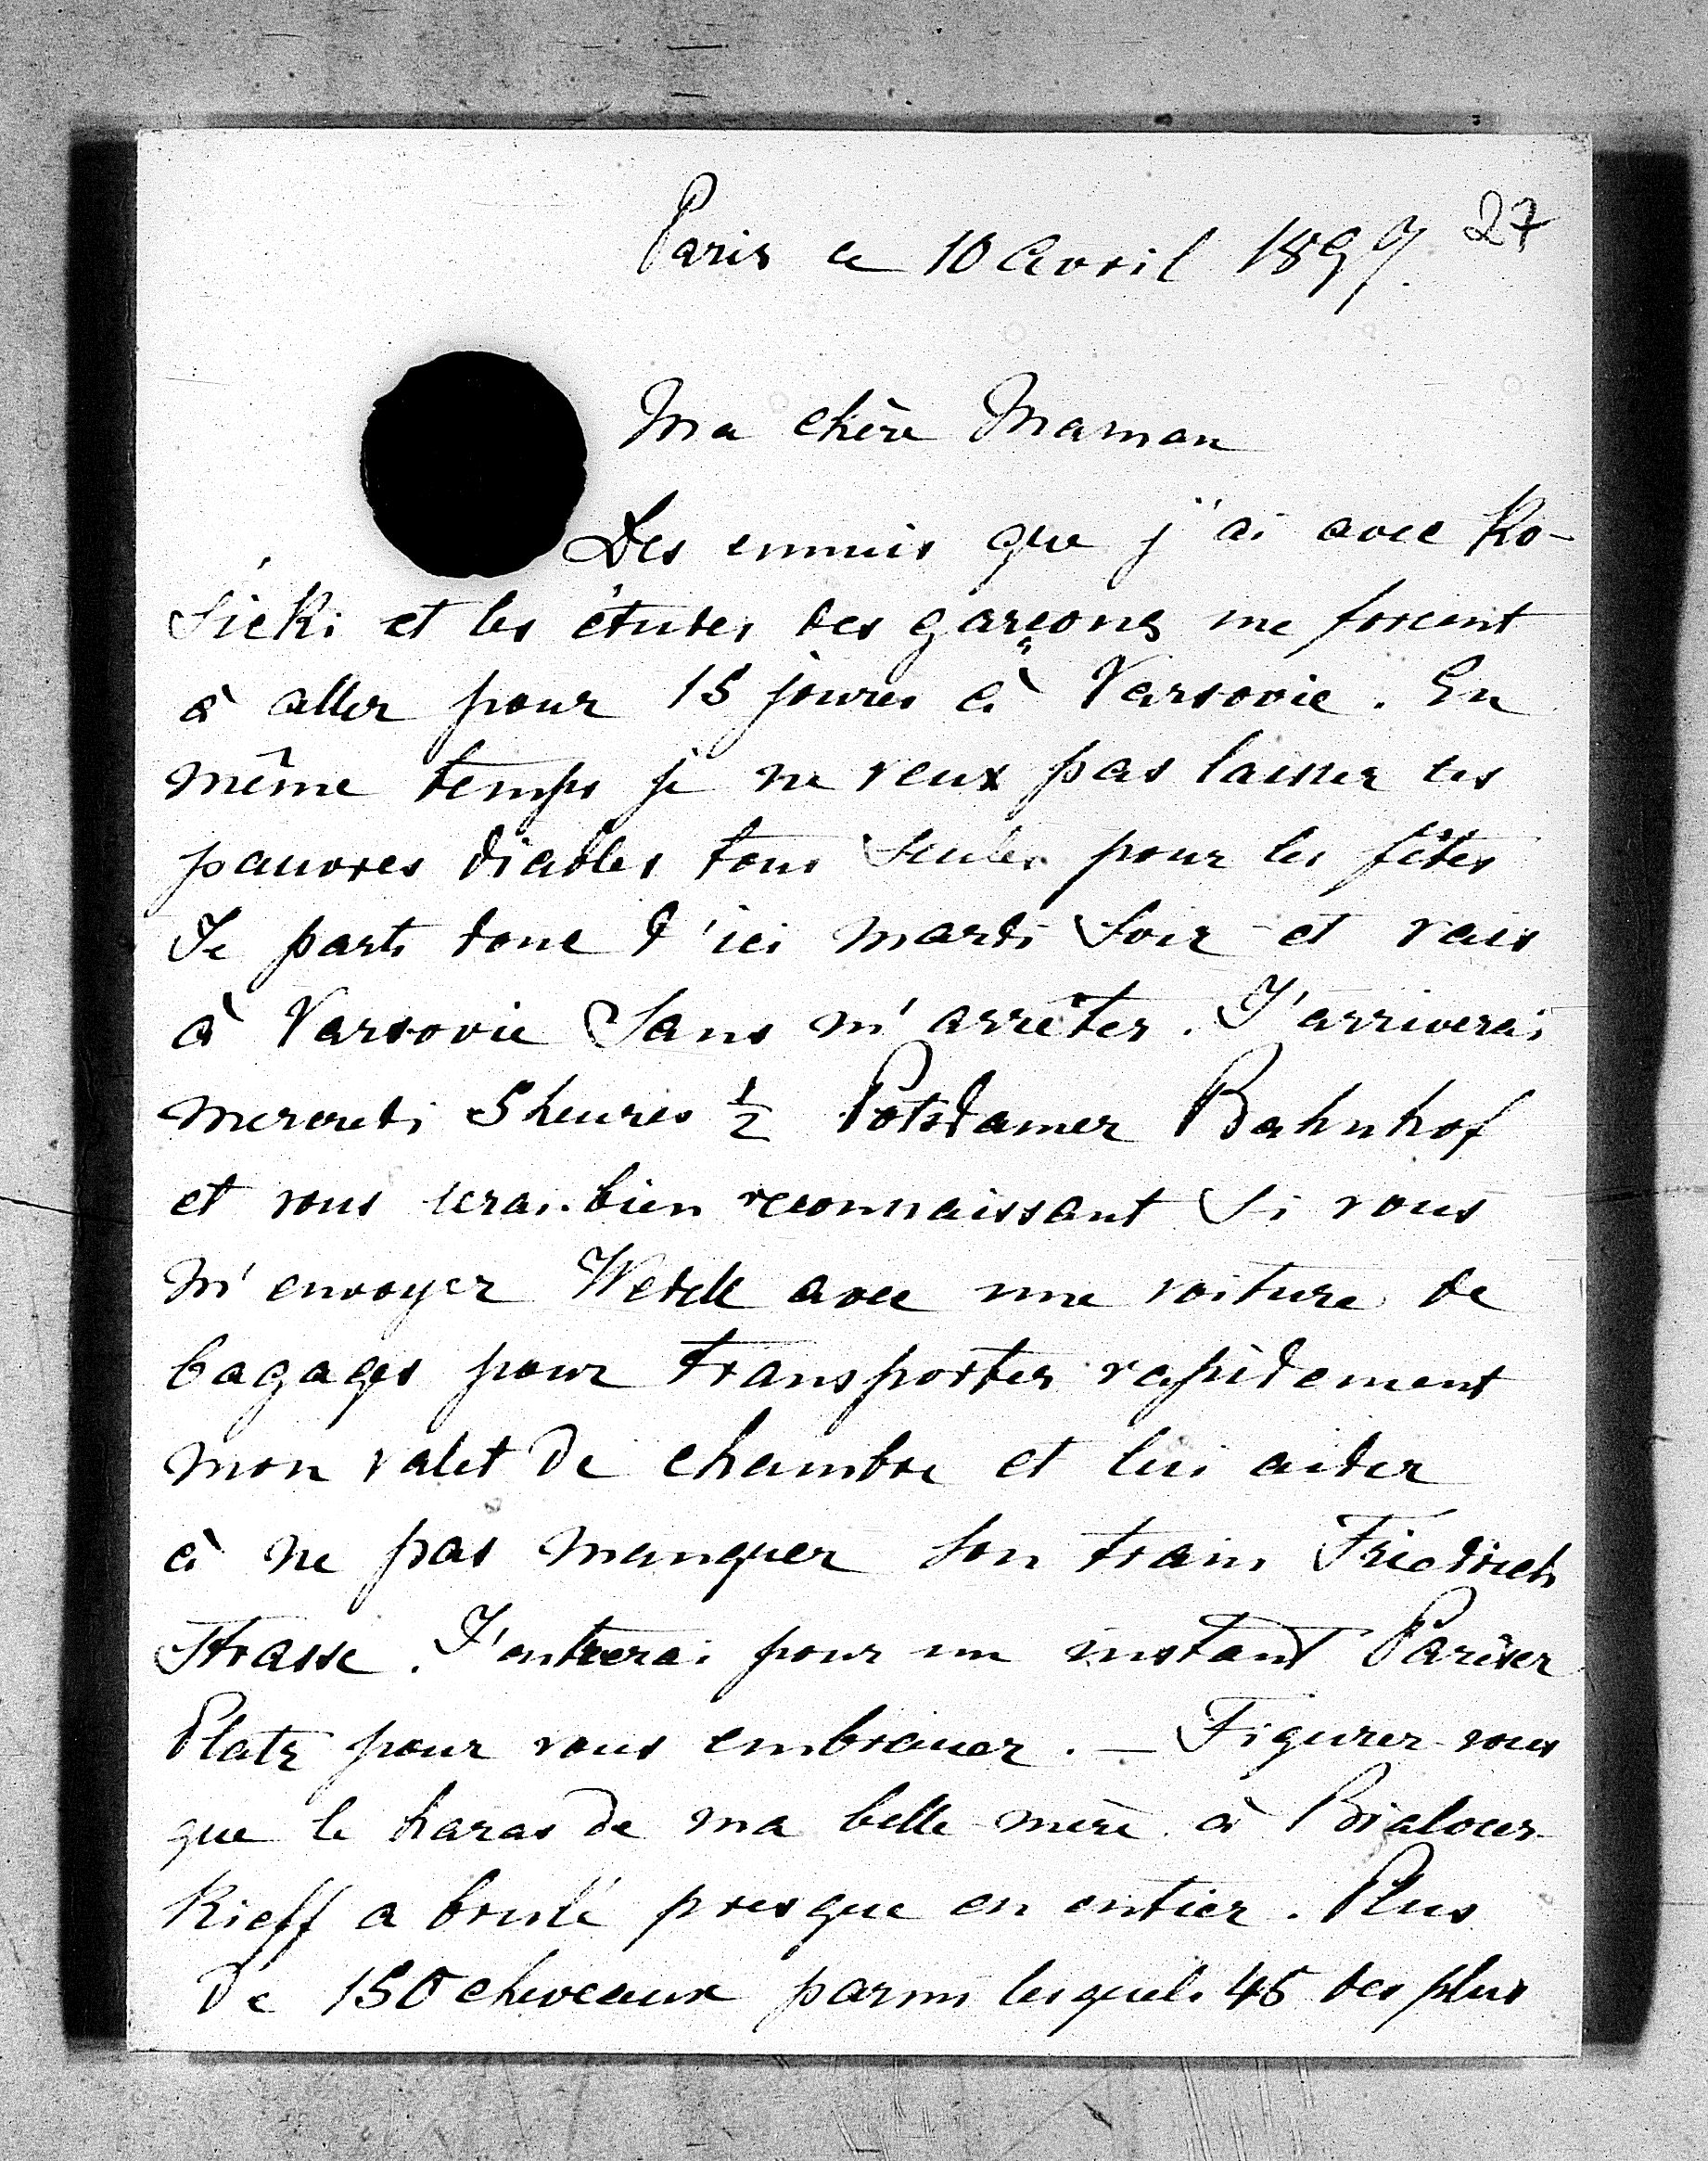 27
Paris ce 10 Avril 1897.
Ma chère Maman
Des ennuis que j'ai avec Ko-
sicki et les études des garçons me forcent
à aller pour 15 jours à Varsovie. En
même temps je ne veux pas laisser ces
pauvres diables tous seules pour les fêtes
Je parts donc d'ici mardi soir et vais
à Varsovie sans m'arrêter. J'arriverai
mercredi 5 heures ½ Potsdamer Bahnhof
et vous serai bien reconnaissant si vous
m'envoyez Wedell avec une voiture de
bagages pour transporter rapidement
mon valet de chambre et lui aider
à ne pas manquer son train Friedrich
Strasse. J'entrerai pour un instant Pariser
Platz pour vous embrasser. — Figurez-vous
que le haras de ma belle-mère à Bialocer-
kieff a brulé presque en entier. Plus
de 150 cheveaux parmi lesquels 45 des plus